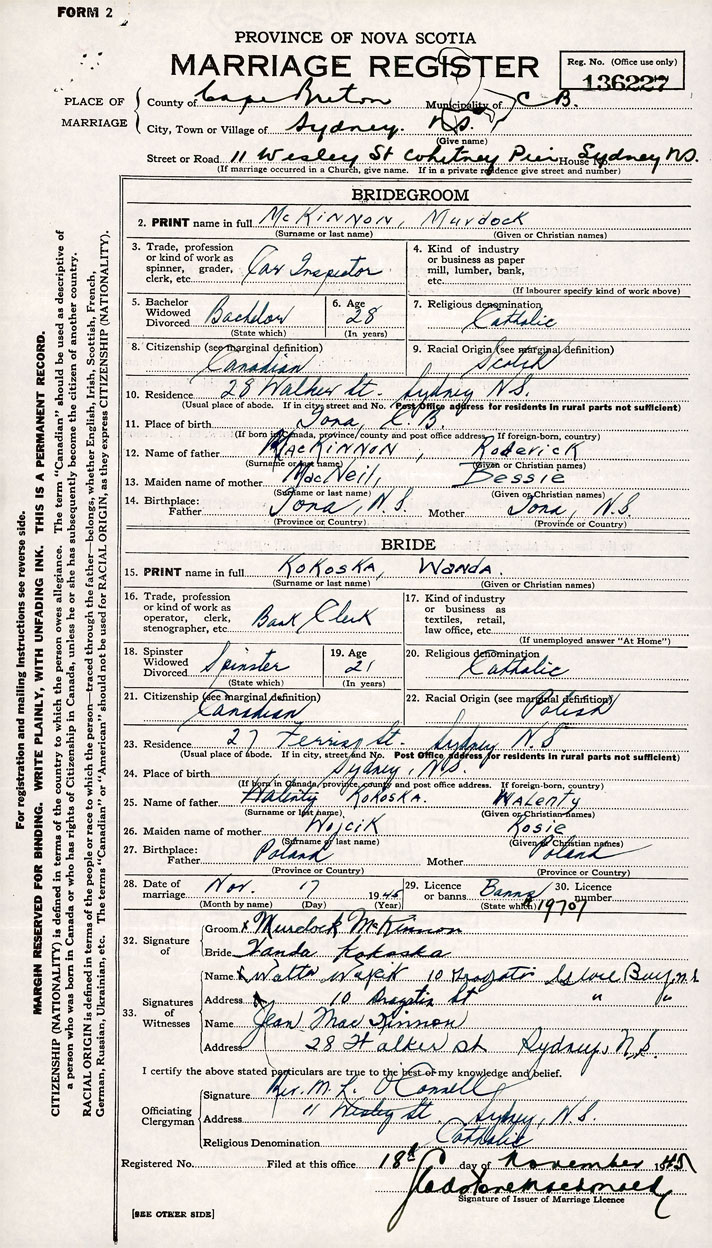 FORM 2
PROVINCE OF NOVA SCOTIA
MARRIAGE REGISTER
Reg. No. (Office use only)
136227
PLACE OF MARRIAGE
County of Cape Breton Municipality of C.B.
City, Town or Village of Sydney. N.S.
(Give name)
Street or Road 11 Wesley St Whitney Pier House No. Sydney N.S.
(If marriage occurred in a Church, give name. If in a private residence give street and number)
BRIDEGROOM
2. PRINT name in full McKINNON, Murdock
(Surname or last name) (Given or Christian names)
3. Trade, profession or kind of work as spinner, grader, clerk, etc. Car Inspector
4. Kind of industry or business as paper mill, lumber, bank, etc.
(If labourer specify kind of work above)
5. Bachelor Widowed Divorced Bachelor
(State which)
6. Age 28
(In years)
7. Religious denomination Catholic
8. Citizenship (see marginal definition) Canadian
9. Racial Origin (see marginal definition) Scotch
10. Residence 28 Walker St. Sydney N.S.
(Usual place of abode. If in city, street and No. Post Office address for residents in rural parts not sufficient)
11. Place of birth Iona, C.B.
(If born in Canada, province, county and post office address. If foreign-born, country)
12. Name of father MacKINNON, Roderick
(Surname or last name) (Given or Christian names)
13. Maiden name of mother MacNeil, Bessie
(Surname or last name) (Given or Christian names)
14. Birthplace: Father Iona, N.S. Mother Iona, N.S.
(Province or Country) (Province or Country)
BRIDE
15. PRINT name in full KOKOSKA, Wanda.
(Surname or last name) (Given or Christian names)
16. Trade, profession or kind of work as operator, clerk, stenographer, etc. Bank Clerk
17. Kind of industry or business as textiles, retail, law office, etc.
(If unemployed answer "At Home")
18. Spinster Widowed Divorced Spinster
(State which)
19. Age 21
(In years)
20. Religious denomination Catholic
21. Citizenship (see marginal definition) Canadian
22. Racial Origin (see marginal definition) Polish
23. Residence 27 Ferris St. Sydney N.S
(Usual place of abode. If in city, street and No. Post Office address for residents in rural parts not sufficient)
24. Place of birth Sydney, N.S.
(If born in Canada, province, county and post office address. If foreign-born, country)
25. Name of father Walenty KOKOSKA. WALENTY
(Surname or last name) (Given or Christian names)
26. Maiden name of mother Wojcik Rosie
(Surname or last name) (Given or Christian names)
27. Birthplace: Father Poland Mother Poland
(Province or Country) (Province or Country)
28. Date of marriage Nov. 17 1945
(Month by name) (Day) (Year)
29. Licence or banns Banns
(State which)
30. Licence number
19707
32. Signature of
Groom x Murdock McKinnon
Bride Wanda Kokoska
33. Signatures of Witnesses
Name x 10 Glace Bay, N.S.
Address 10 St " "
Name Jean MacKinnon
Address 28 Walker St Sydney, N.S.
I certify the above stated particulars are true to the best of my knowledge and belief.
Officiating Clergyman
Signature Rev. M. L. O'Connell
Address 11 Wesley St. Sydney, N.S.
Religious Denomination Catholic
Registered No. Filed at this office 18th day of November 1945
Signature of Issuer of Marriage Licence
[SEE OTHER SIDE]
For registration and mailing instructions see reverse side.
MARGIN RESERVED FOR BINDING. WRITE PLAINLY, WITH UNFADING INK. THIS IS A PERMANENT RECORD.
CITIZENSHIP (NATIONALITY) is defined in terms of the country to which the person owes allegiance. The term "Canadian" should be used as descriptive of
a person who was born in Canada or who has rights of Citizenship in Canada, unless he or she has subsequently become the citizen of another country.
RACIAL ORIGIN is defined in terms of the people or race to which the person—traced through the father—belongs, whether English, Irish, Scottish, French,
German, Russian, Ukrainian, etc. The terms "Canadian" or "American" should not be used for RACIAL ORIGIN, as they express CITIZENSHIP (NATIONALITY).